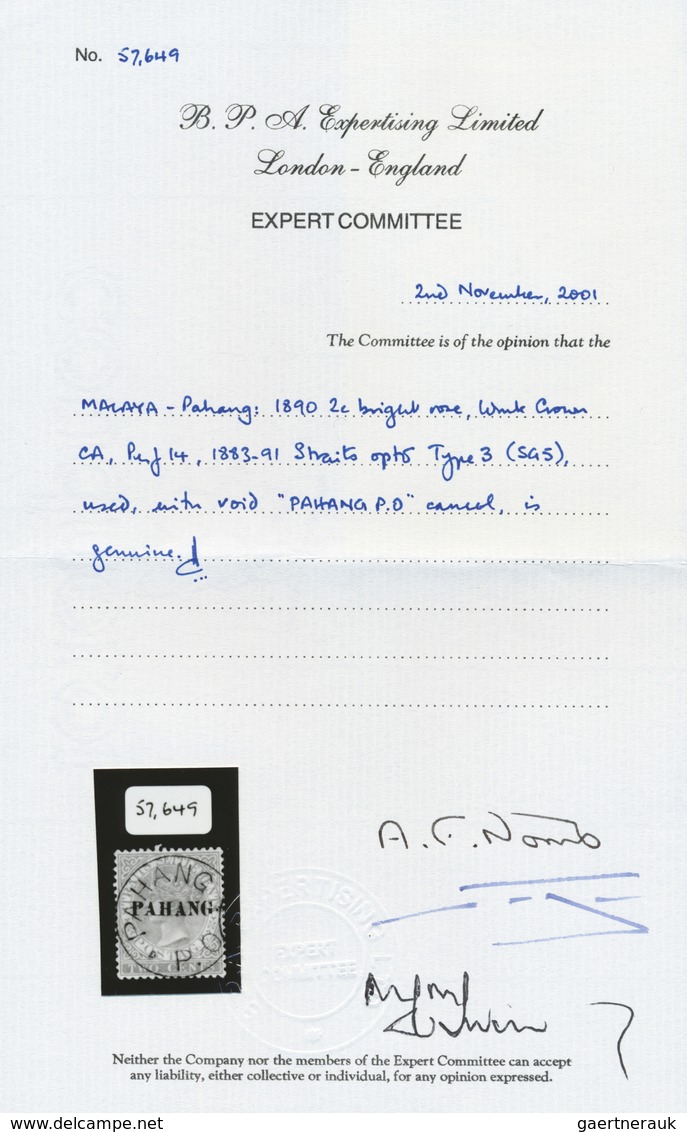 No. 57,649
B. P. A. Expertising Limited
London - England
EXPERT COMMITTEE
2nd November, 2001
The Committee is of the opinion that the
MALAYA - Pahang: 1890 2c bright rose, Wmk Crown
CA, Perf 14, 1883-91 Straits opt Type 3 (SG5),
used, with void "PAHANG P.O" cancel, is
genuine.
57,649
PAHANG
PAHANG
P.O
TWO CENTS
Neither the Company nor the members of the Expert Committee can accept
any liability, either collective or individual, for any opinion expressed.
www.delcampe.net
gaertnerauk